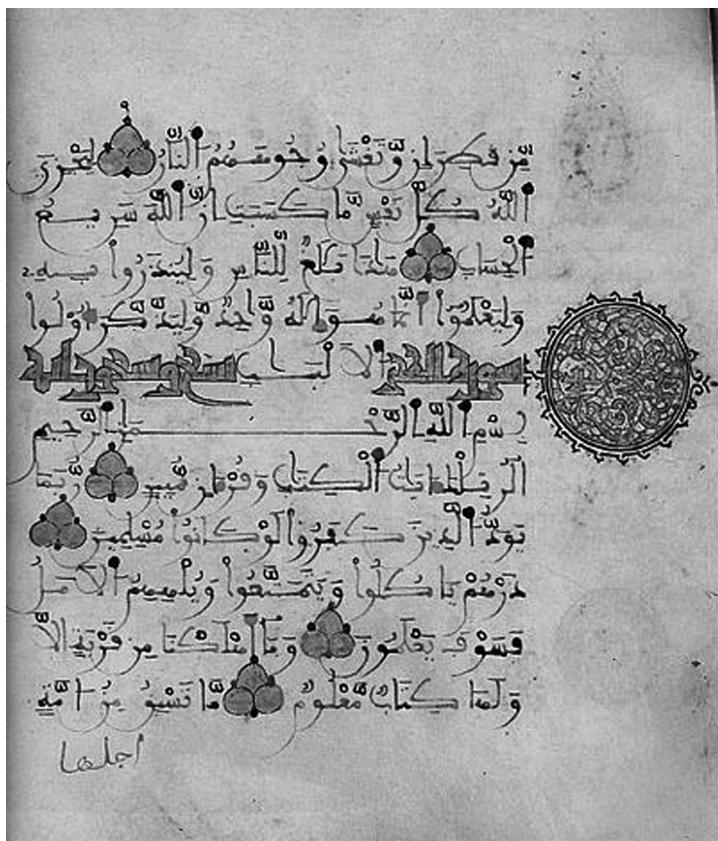 مِّن قَطِرَانٍ وَّتَغْشَىٰ وُجُوهَهُمُ النَّارُ لِيَجْزِيَ
اللَّهُ كُلَّ نَفْسٍ مَّا كَسَبَتِ انَّ اللَّهَ سَرِيعُ
الْحِسَابِ هَٰذَا بَلَٰغٌ لِّلنَّاسِ وَلِيُنذَرُوا بِهِ
وَلِيَعْلَمُوا أَنَّمَا هُوَ إِلَٰهٌ وَّاحِدٌ وَّلِيَذَّكَّرَ أُوْلُوا
سورة الحجر الَالْبَٰبِ تسع وتسعون اية
بِسْمِ اللَّهِ الرَّحْمَٰنِ الرَّحِيمِ
الٓر تِلْكَ ءَايَٰتُ الْكِتَٰبِ وَقُرْءَانٍ مُّبِينٍ رُّبَمَا
يَوَدُّ الَّذِينَ كَفَرُوا لَوْ كَانُوا مُسْلِمِينَ
ذَرْهُمْ يَاكُلُوا وَيَتَمَتَّعُوا وَيُلْهِهِمُ الَامَلُ
فَسَوْفَ يَعْلَمُونَ وَمَا أَهْلَكْنَا مِن قَرْيَةٍ الَّا
وَلَهَا كِتَابٌ مَّعْلُومٌ مَّا تَسْبِقُ مِنُ امَّةٍ
اجلها